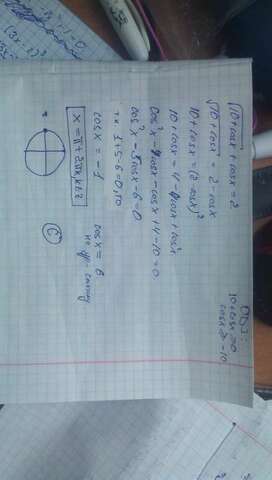 √10+cosx + cosx = 2
√10+cosx = 2 - cosx
10+cosx = (2-cosx)²
10+cosx = 4 - 4cosx + cos²x
cos²x - 4cosx - cosx + 4 - 10 = 0
cos²x - 5cosx - 6 = 0
т.к 1+5-6=0, то
cosx = -1
cosx = 6
x = π + 2πk, k∈Z
ОДЗ:
10+cosx ≥ 0
cosx ≥ -10